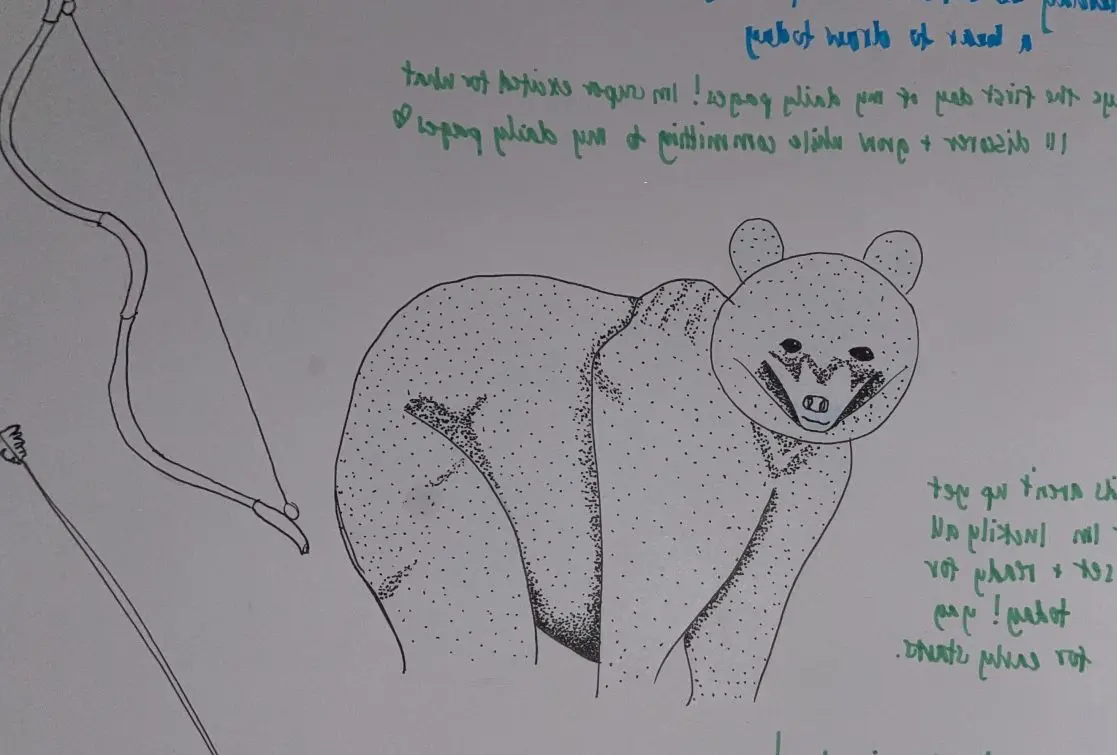 a bear to draw today
the first day of my daily pages! Im super excited for what
I'll discover + grow while committing to my daily pages ♡
aren't up yet
Im luckily all
set + ready for
today! yay
for early starts.